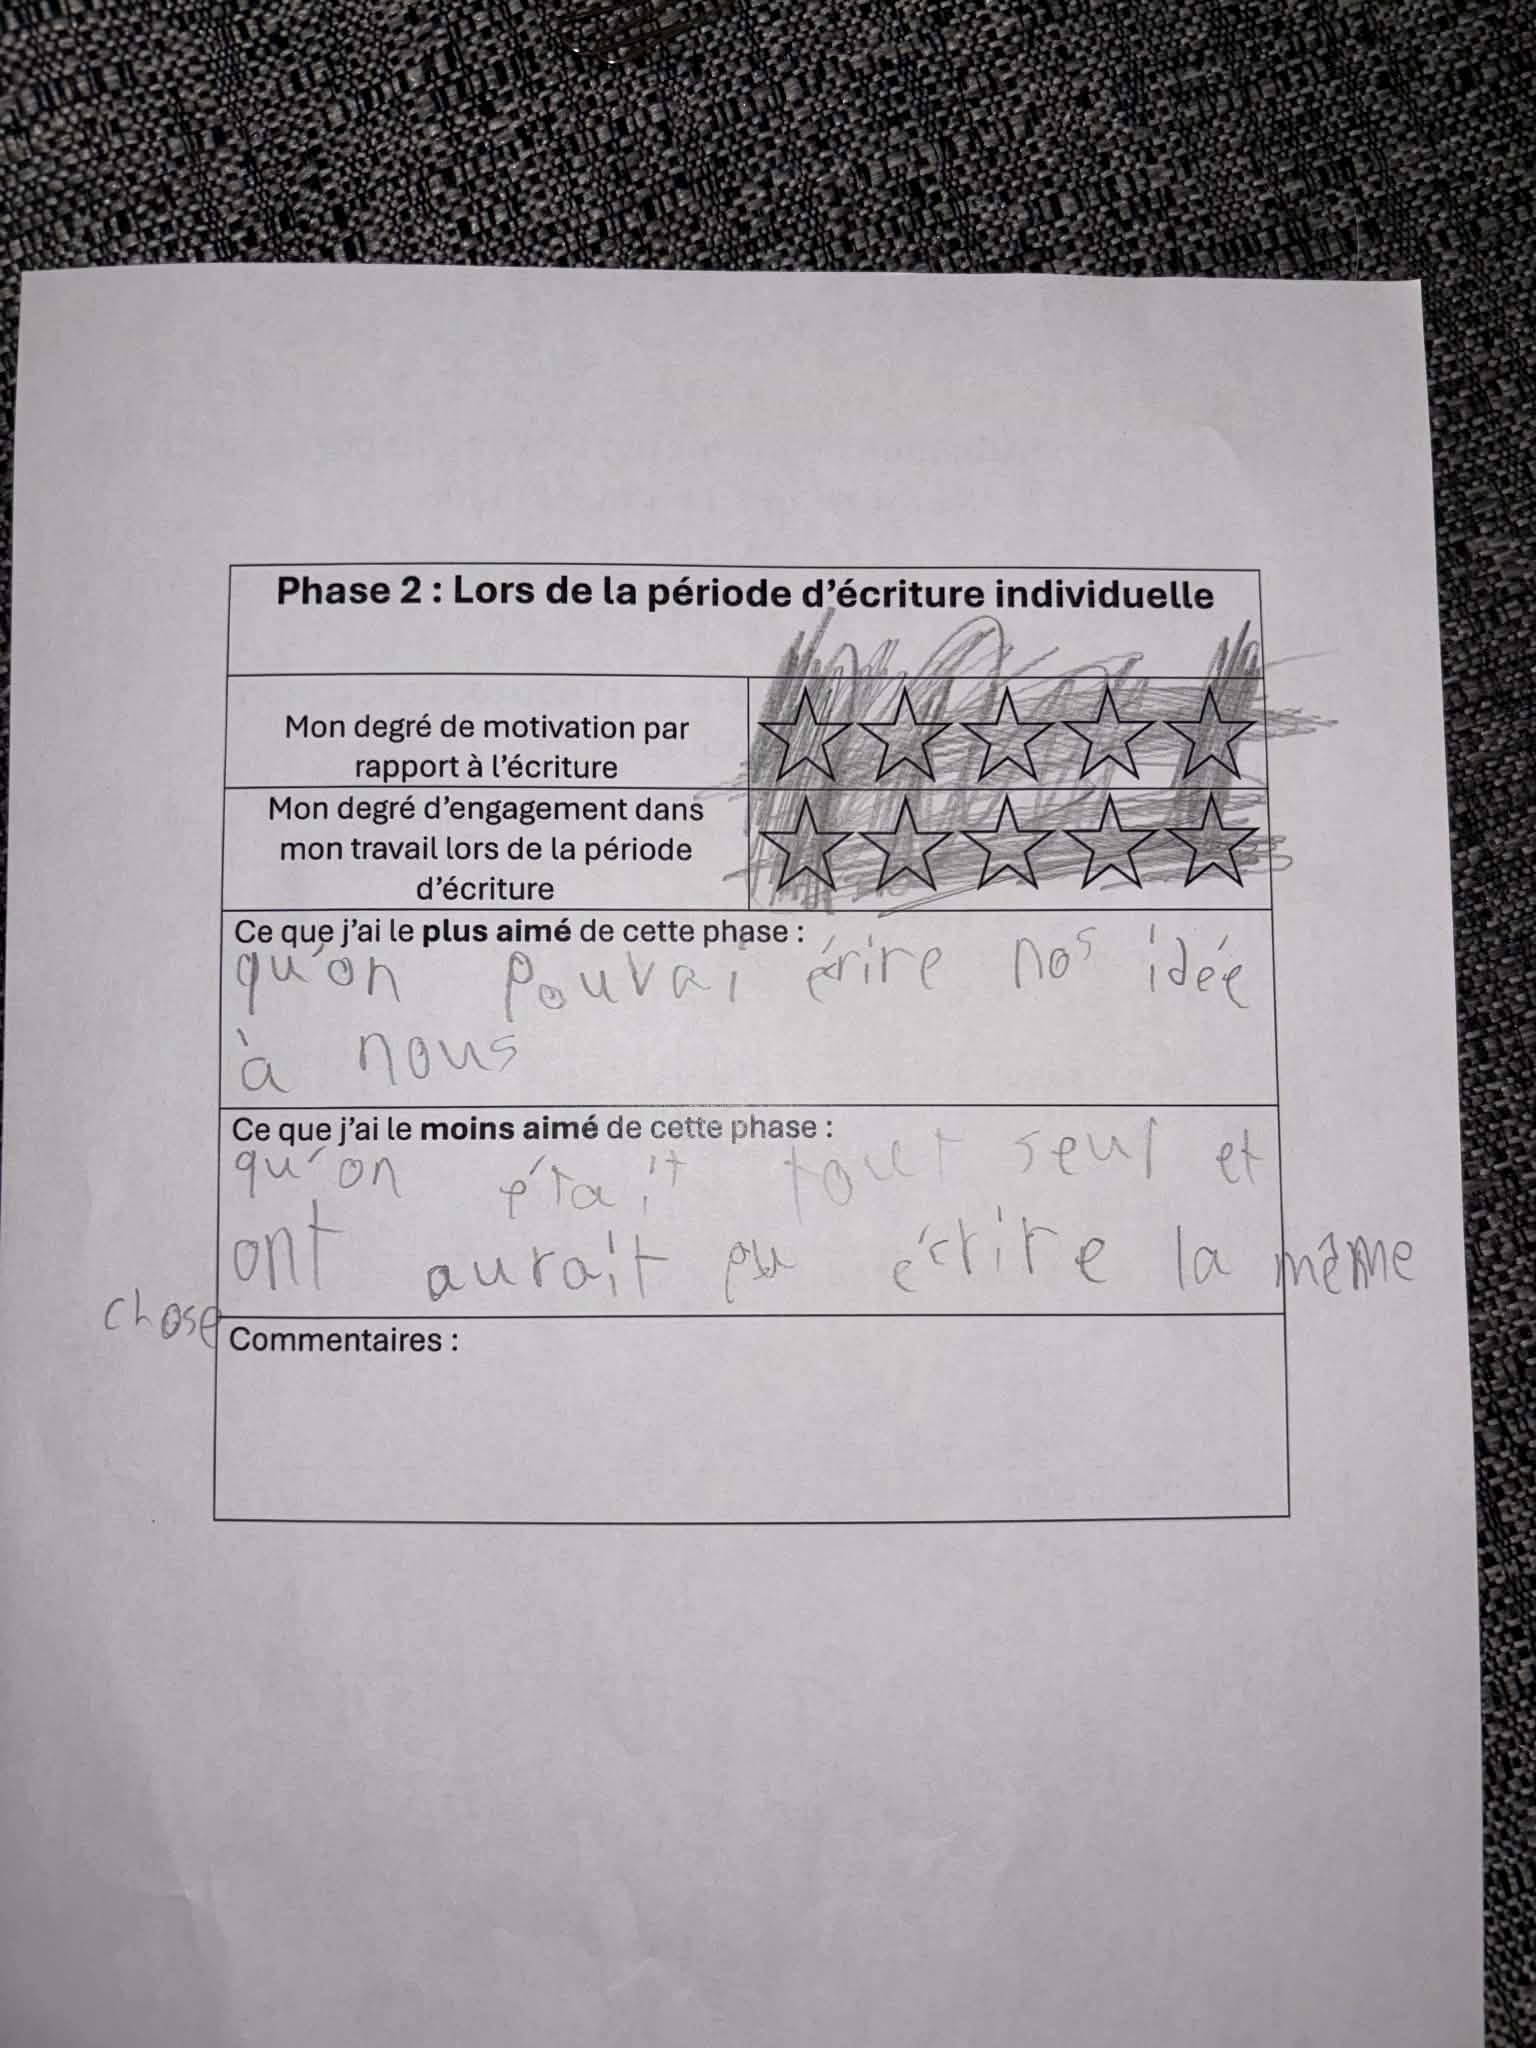 Phase 2 : Lors de la période d'écriture individuelle
Mon degré de motivation par
rapport à l'écriture
Mon degré d'engagement dans
mon travail lors de la période
d'écriture
Ce que j'ai le plus aimé de cette phase :
qu'on pouvai érire nos idée
à nous
Ce que j'ai le moins aimé de cette phase :
qu'on était tout seul et
ont aurait pu écrire la même
chose
Commentaires :